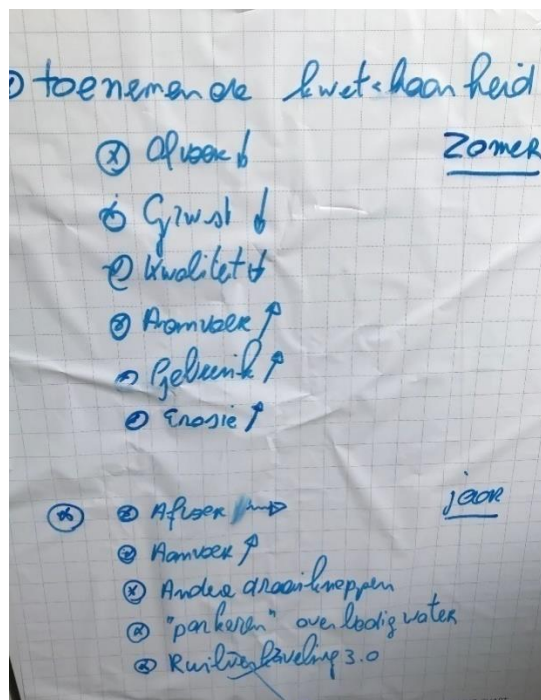 toenemende kwetsbaarheid
Zomer
Afvoer ↓
Grwst ↓
Kwaliteit ↓
Aanvoer ↑
Gebruik ↑
Erosie ↑
jaar
Afvoer →
Aanvoer ↑
Andere draaiknoppen
"parkeren" overbodig water
Ruilverkaveling 3.0